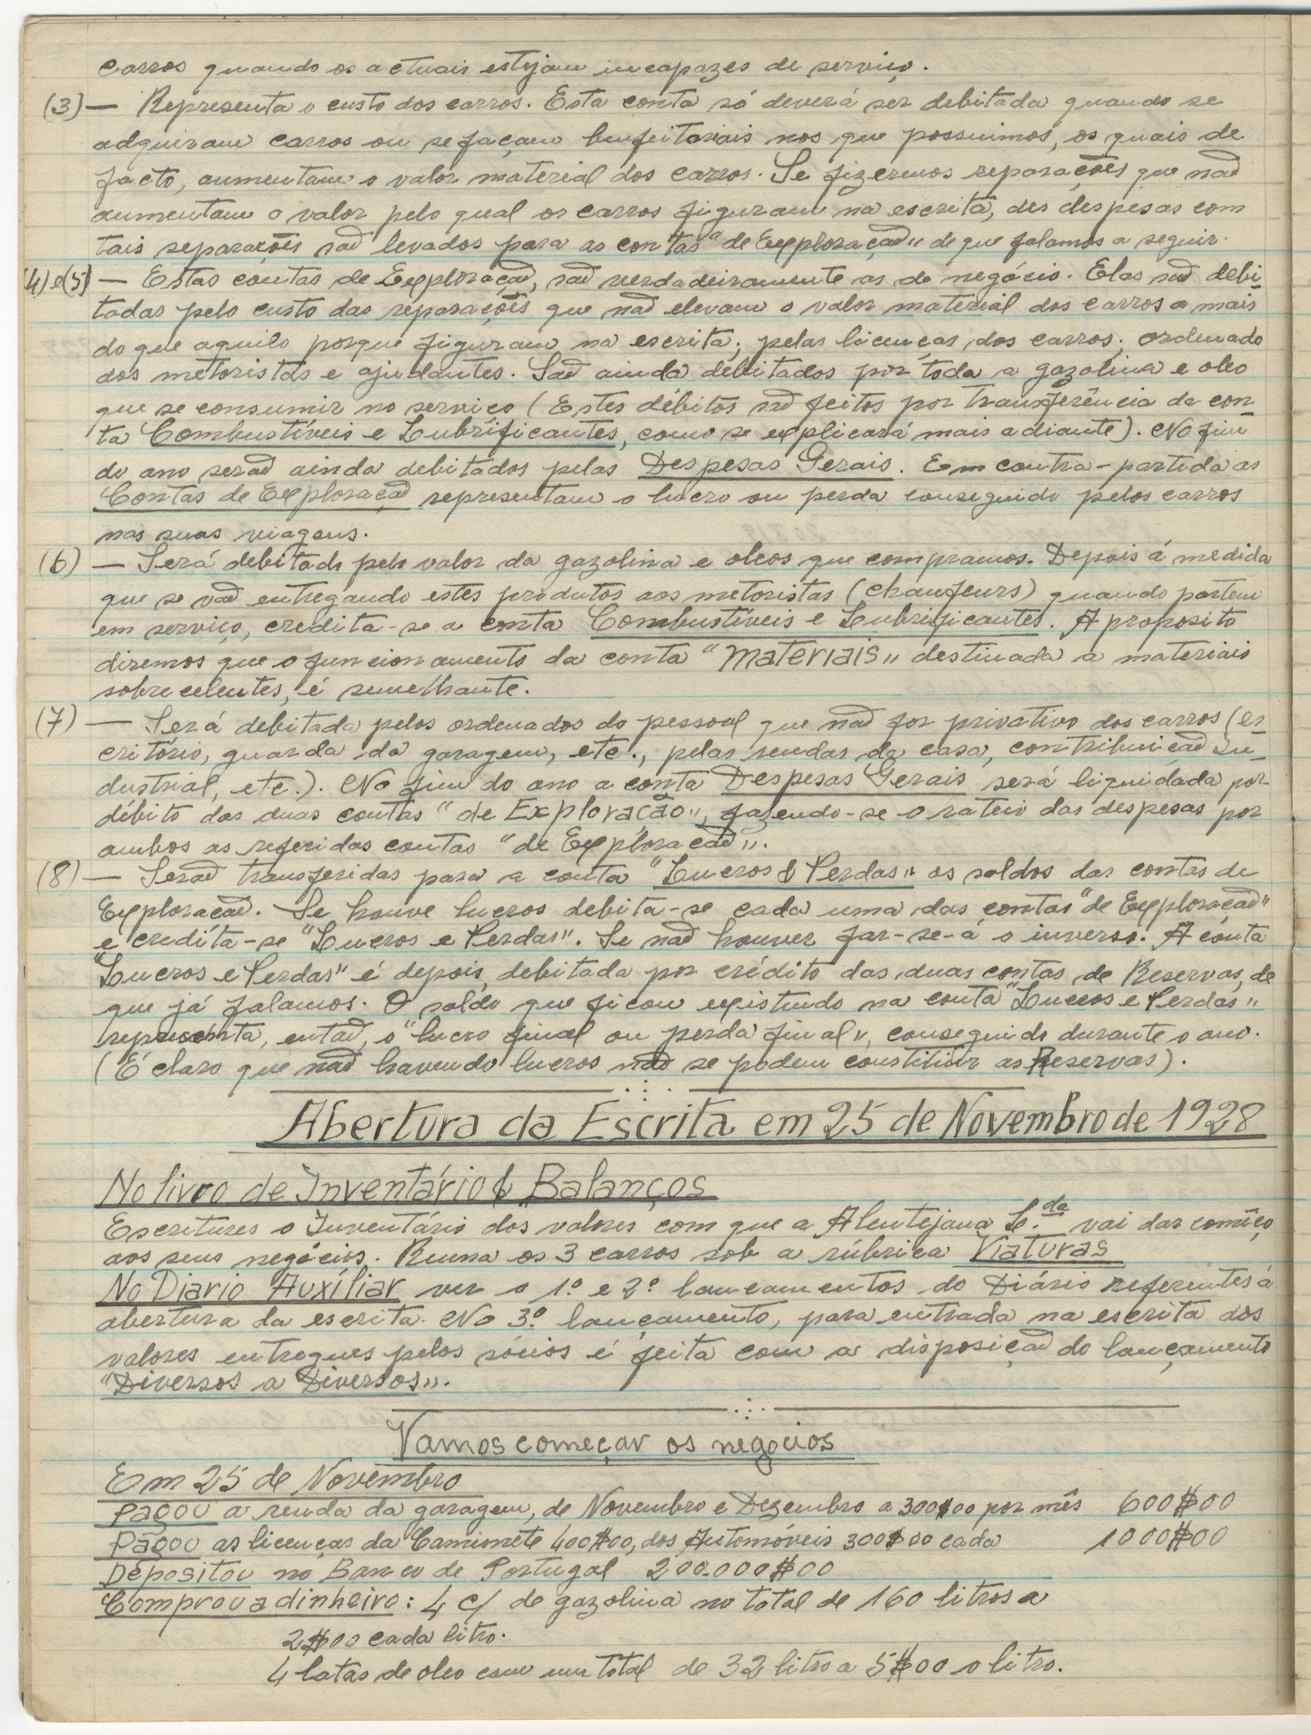 carros quando os actuais estejam incapazes de serviço.
(3) — Representa o custo dos carros. Esta conta só deverá ser debitada quando se
adquiram carros ou se façam bemfeitoriais nos que possuimos, os quais de
facto, aumentam o valor material dos carros. Se fizermos reparações que não
aumentam o valor pelo qual os carros figuram na escrita, des despesas com
tais reparações são levados para as contas "de Exploração" de que falamos a seguir.
(4) e (5) — Estas contas de Exploração, são verdadeiramente as do negócio. Elas são debi-
tadas pelo custo das reparações que não elevam o valor material dos carros a mais
do que aquilo porque figuram na escrita; pelas licenças dos carros; ordenado
dos motoristas e ajudantes. São ainda debitados por toda a gazolina e oleo
que se consumir no serviço (Estes débitos são feitos por transferência da con-
ta Combustíveis e Lubrificantes, como se explicará mais adiante). No fim
do ano serão ainda debitados pelas Despesas Gerais. Em contra-partida as
Contas de Exploração representam o lucro ou perda conseguido pelos carros
nas suas viagens.
(6) — Será debitado pelo valor da gazolina e oleos que compramos. Depois á medida
que se vão entregando estes produtos aos motoristas (chaufeurs) quando partem
em serviço, credita-se a conta Combustíveis e Lubrificantes. A proposito
diremos que o funcionamento da conta "Materiais" destinada a materiais
sobrecelentes, é semelhante.
(7) — Será debitada pelos ordenados do pessoal que não for privativo dos carros (es
critório, guarda da garagem, etc., pelas rendas da casa, contribuição In-
dustrial, etc.). No fim do ano a conta Despesas Gerais será liquidada por
débito das duas contas "de Exploração", fazendo-se o rateio das despesas por
ambos as referidas contas "de Exploração".
(8) — Serão transferidas para a conta "Lucros & Perdas" os saldos das contas de
Exploração. Se houve lucros debita-se cada uma das contas "de Exploração"
e credita-se "Lucros e Perdas". Se não houver far-se-á o inverso. A conta
"Lucros e Perdas" é depois, debitada por crédito das duas contas de Reservas, de
que já falamos. O saldo que ficou existindo na conta "Lucros e Perdas"
representa, então, o "lucro final ou perda final", conseguido durante o ano.
(É claro que não havendo lucros não se podem constituir as Reservas).
Abertura da Escrita em 25 de Novembro de 1928
No livro de Inventário & Balanços
Escriturer o Inventário dos valores com que a Alentejana L.da vai dar comêço
aos seus negócios. Reuna os 3 carros sob a rúbrica Viaturas
No Diario Auxíliar ver o 1º e 2º lançamentos do Diário referentes á
abertura da escrita. No 3º lançamento, para entrada na escrita dos
valores entregues pelos sócios é feita com a disposição do lançamento
"Diversos a Diversos".
Vamos começar os negocios
Em 25 de Novembro
Pagou a renda da garagem, de Novembro e Dezembro a 300$00 por mês 600$00
Pagou as licenças da Camionete 400$00, dos Automóveis 300$00 cada 1000$00
Depositou no Banco de Portugal 200.000$00
Comprou a dinheiro: 4 c/ de gazolina no total de 160 litros a
2$00 cada litro.
4 latas de oleo com um total de 32 litro a 5$00 o litro.